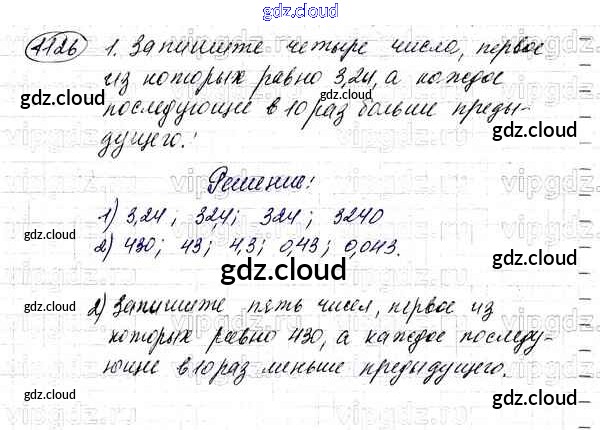 gdz.cloud
1126 1. Запишите четыре числа, первое
из которых равно 3,24, а каждое
gdz.cloud
gdz.cloud
последующие в 10 раз больше преды-
gdz.cloud
дущего.
Решение:
1) 3,24; 32,4; 324; 3240
gdz.cloud
gdz.cloud
2) 430; 43; 4,3; 0,43; 0,043.
gdz.cloud
2) Запишите пять чисел, первое из
gdz.cloud
которых равно 430, а каждое последу-
ющие в 10 раз меньше предыдущего.
gdz.cloud
gdz.cloud